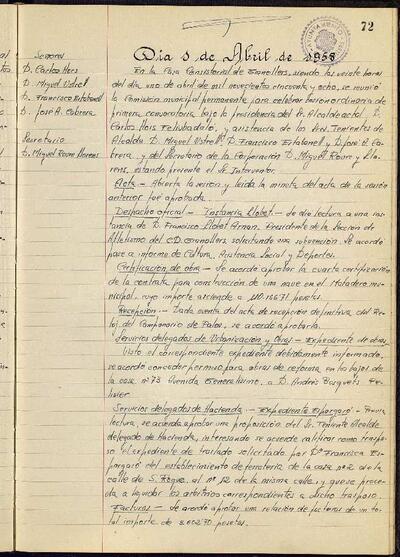 72
Señores
D. Carlos Hors
D. Miguel Votref
D. Francisco Estabanell
D. José A. Cabrera
Secretario
D. Miguel Roure Llorens
Dia 1 de Abril de 1958
En la Casa Consistorial de Granollers, siendo las veinte horas
del dia uno de abril de mil novecientos cincuenta y ocho, se reunió
la Comision municipal permanente para celebrar sesion ordinaria de
primera convocatoria bajo la presidencia del Sr. Alcalde actal D.
Carlos Hors y asistencia de los Sres. Tenientes de
Alcalde D. Miguel D. Francisco Estabanell y D. José A. Ca-
brera, y del Secretario de la Corporación D. Miguel Roure y Llo-
rens, estando presente el Sr. Interventor.
Acta - Abierta la sesion y leida la minuta del acta de la sesión
anterior fué aprobada.
Despacho oficial - Instancia Llobet - Se dio lectura a una ins-
tancia de D. Francisco Llobet Arnan, Presidente de la Seccion de
Atletismo del C.D. Granollers solicitando una subvención. Se acordó
pase a informe de Cultura, Asistencia Social y Deportes.
Certificación de obra - Se acordó aprobar la cuarta certificación
de la contrata para construcción de una nave en el Matadero mu-
nicipal, cuyo importe asciende a pesetas.
Recepción - Dada cuenta del acta de recepción definitiva del Re-
loj del Campanario de Palou, se acordó aprobarla.
Servicios delegados de Urbanización y Obras - Expediente de obras
Visto el correspondiente expediente debidamente informado,
se acordó conceder permiso para obras de reforma en los bajos de
la casa nº 73 Avenida Generalisimo a D. Andrés Barquets

Servicios delegados de Hacienda - Expediente Espargaró - Previa
lectura, se acuerda aprobar una proposición del Sr. Teniente Alcalde
delegado de Hacienda, interesando se acuerde calificar como traspa-
so el expediente de traslado solicitado por Dª Francisca Es-
pargaró del establecimiento de ferreteria de la casa nº de la
calle de S. Roque, al nº 12 de la misma calle, y que se proce-
da a liquidar los arbitrios correspondientes a dicho traspaso.
Facturas - Se acordó aprobar una relación de facturas de un to-
tal importe de pesetas.